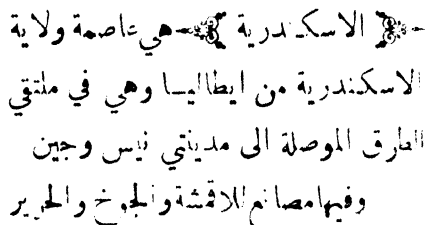 ﴿ الاسكندرية ﴾ هي عاصمة ولاية
الاسكندرية من ايطاليا وهي في ملتقي
الطرق الموصلة الى مدينتي نيس وجين
وفيها مصانع للاقمشة والجوخ والحرير